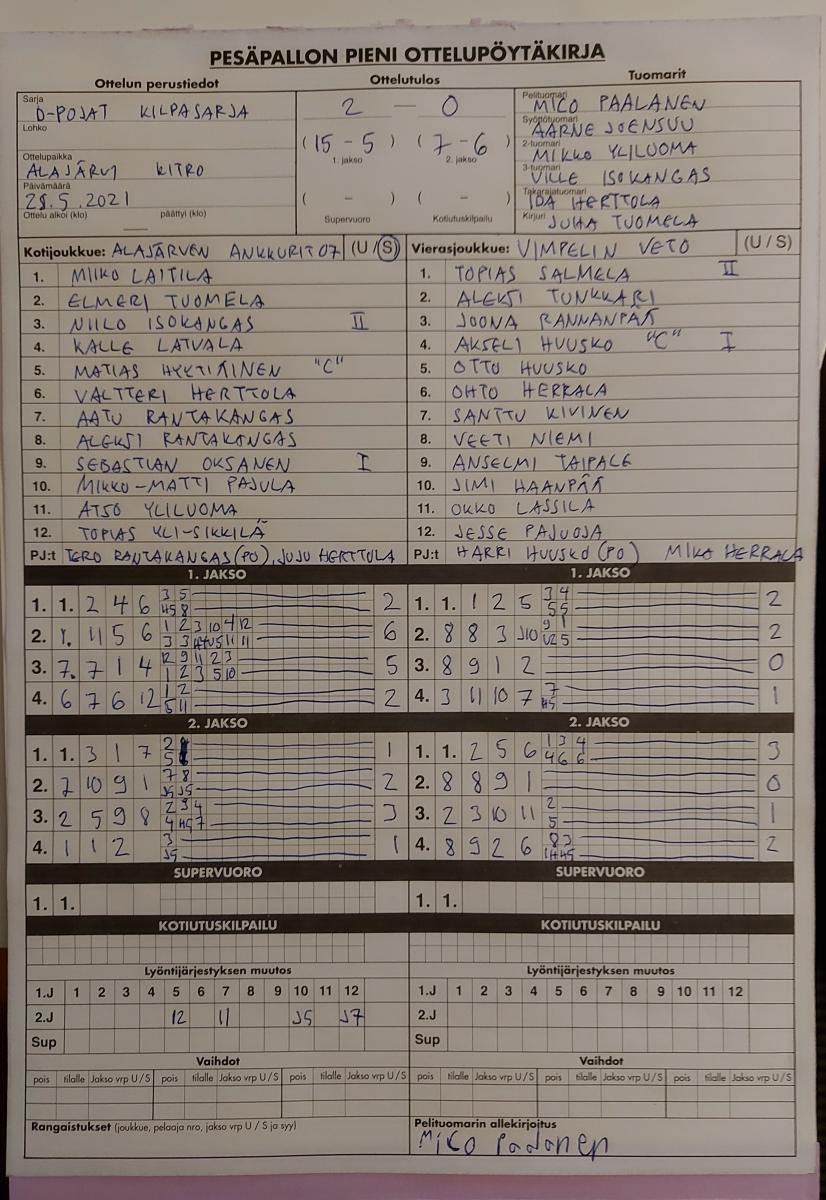 PESÄPALLON PIENI OTTELUPÖYTÄKIRJA
Ottelun perustiedot Ottelutulos Tuomarit
Sarja D-POJAT KILPASARJA
Lohko
Ottelupaikka ALAJÄRVI KITRO
Päivämäärä 28.5.2021
Ottelu alkoi (klo) päättyi (klo)
2 — 0
(15 - 5) (7 - 6)
1. jakso 2. jakso
( - ) ( - )
Supervuoro Kotiutuskilpailu
Pelituomari MICO PAALANEN
Syöttötuomari AARNE JOENSUU
2-tuomari MIKKO YLILUOMA
3-tuomari VILLE ISOKANGAS
Takarajatuomari IDA HERTTOLA
Kirjuri JUHA TUOMELA
Kotijoukkue: ALAJÄRVEN ANKKURIT 07 (U / S) Vierasjoukkue: VIMPELIN VETO (U / S)
1. MIIKO LAITILA 1. TOPIAS SALMELA II
2. ELMERI TUOMELA 2. ALEKSI TUNKKARI
3. NIILO ISOKANGAS II 3. JOONA RANNANPÄÄ
4. KALLE LATVALA 4. AKSELI HUUSKO "C" I
5. MATIAS HYYTIÄINEN "C" 5. OTTO HUUSKO
6. VALTTERI HERTTOLA 6. OHTO HERRALA
7. AATU RANTAKANGAS 7. SANTTU KIVINEN
8. ALEKSI RANTAKANGAS 8. VEETI NIEMI
9. SEBASTIAN OKSANEN I 9. ANSELMI TAIPALE
10. MIKKO-MATTI PAJULA 10. JIMI HAANPÄÄ
11. ATSO YLILUOMA 11. OKKO LASSILA
12. TOPIAS YLI-SIKKILÄ 12. JESSE PAJUOJA
PJ:t TERO RANTAKANGAS (PO), JUJU HERTTOLA PJ:t HARRI HUUSKO (PO) MIKA HERRALA
1. JAKSO 1. JAKSO
1. 1. 2 4 6 3 5 2 1. 1. 1 2 5 3 4 5 5 2
2. 11 5 6 1 2 3 10 4 12 6 2. 8 8 3 J10 9 1 2
3. 7. 7 1 4 12 9 11 2 3 1 2 3 5 10 5 3. 8 9 1 2 0
4. 6 7 6 12 1 2 5 11 2 4. 3 11 10 7 7 1
2. JAKSO 2. JAKSO
1. 1. 3 1 7 1 1. 1. 2 5 6 1 3 4 4 6 6 3
2. 7 10 9 1 7 8 J5 J5 2 2. 8 8 9 1 0
3. 2 5 9 8 2 3 4 3 3. 2 3 10 11 2 5 1
4. 1 1 2 3 J5 1 4. 8 9 2 6 8 3 2
SUPERVUORO SUPERVUORO
1. 1. 1. 1.
KOTIUTUSKILPAILU KOTIUTUSKILPAILU
Lyöntijärjestyksen muutos Lyöntijärjestyksen muutos
1.J 1 2 3 4 5 6 7 8 9 10 11 12 1.J 1 2 3 4 5 6 7 8 9 10 11 12
2.J 12 11 J5 J7 2.J
Sup Sup
Vaihdot Vaihdot
pois tilalle Jakso vrp U / S pois tilalle Jakso vrp U / S pois tilalle Jakso vrp U / S pois tilalle Jakso vrp U / S pois tilalle Jakso vrp U / S pois tilalle Jakso vrp U / S
Rangaistukset (joukkue, pelaaja nro, jakso vrp U / S ja syy) Pelituomarin allekirjoitus
MiCO Paalanen